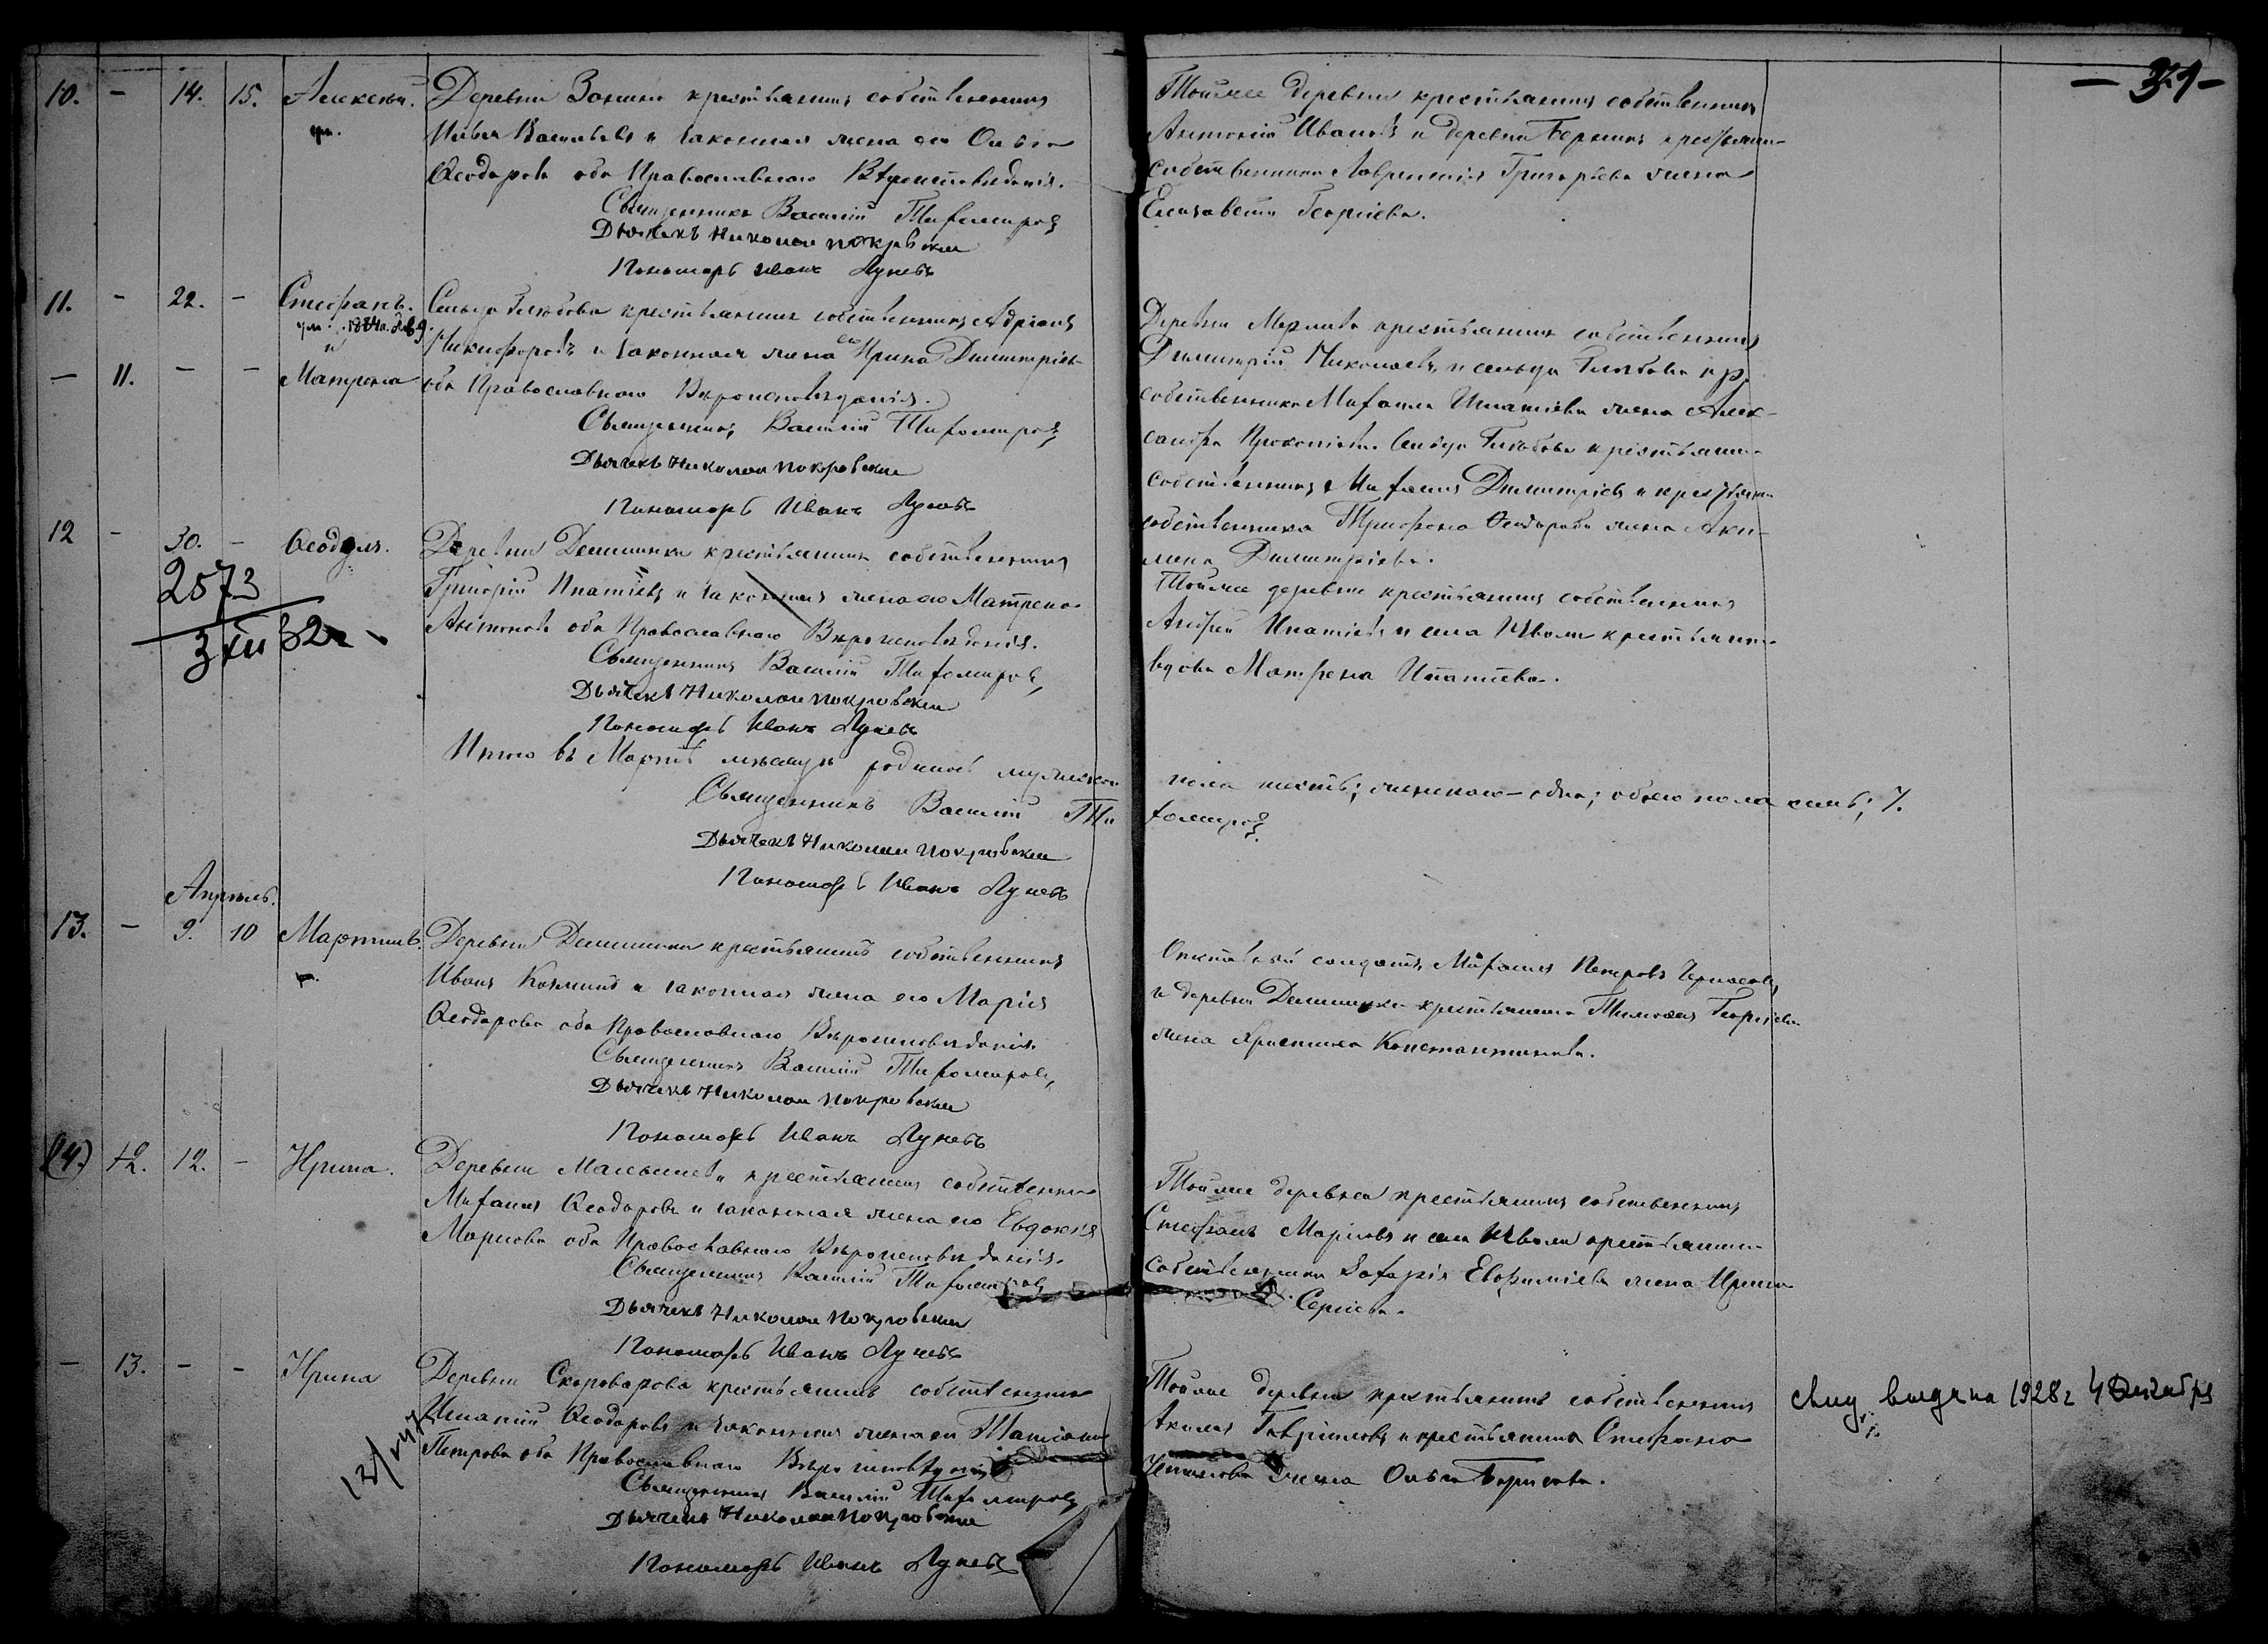 — 31 —
10. — 14. 15. Алексѣй. Деревни Зонино крестьянинъ собственникъ
ум. Илья Васильевъ и законная жена его Ольга
Ѳеодорова оба Православнаго Вѣроисповѣданія.
Священникъ Василій Тихомировъ
Дьячекъ Николаи Покровскии
Пономарь Иванъ Луневъ
Тойже деревни крестьянинъ собственникъ
Антоній Ивановъ и деревни крестьянина
собственника Лаврентія Григорьева жена
Елизавета Георгіева.
11. — 22. — Стефанъ. Сельца Глѣбова крестьянинъ собственникъ Адріанъ
ум. 1884 г.
и Никифоровъ и законная жена его Ирина Димитріева
— 11. — — Матрона оба Православнаго Вѣроисповѣданія.
Священникъ Василій Тихомировъ
Дьячекъ Николаи Покровскии
Пономарь Иванъ Луневъ
Деревни крестьянинъ собственникъ
Димитрій Николаевъ, и сельца Глѣбова кр.
собственника Михаила Игнатіева жена Алек-
сандра Прокопіева. Сельца Глѣбова крестьянинъ
собственникъ Михаилъ Димитріевъ и крестьянина
собственника Трифона Ѳеодорова жена Аки-
лина Димитріева.
12 — 30. — Ѳеодулъ. Деревни Демшинки крестьянинъ собственникъ
2573
Григорій Ипатіевъ и законная жена его Матрена
3 XII 32 г.
Антонова оба Православнаго Вѣроисповѣданія.
Священникъ Василій Тихомировъ,
Дьячекъ Николаи Покровскии
Пономарь Иванъ Луневъ
Тойже деревни крестьянинъ собственникъ
Андрей Ипатіевъ и села Иволи крестьянка
вдова Матрена Ипатіева.
Итого въ Мартѣ мѣсяцѣ родилось мужескаго пола шесть; женскаго — одна; обоего пола семь; 7.
Священникъ Василій Тихомировъ
Дьячекъ Николаи Покровскии
Пономарь Иванъ Луневъ
Апрѣль.
13. — 9. 10 Мартинъ. Деревни Демшинки крестьянинъ собственникъ
Иванъ Козминъ и законная жена его Марія
Ѳеодорова оба Православнаго Вѣроисповѣданія.
Священникъ Василій Тихомировъ,
Дьячекъ Николаи Покровскии
Пономарь Иванъ Луневъ
Отставной солдатъ, Михаилъ Петровъ
и деревни Демшинки крестьянина Тимоѳея Георгіева
жена Христина Константинова.
(14.) 12. 12. — Ирина. Деревни Малышева крестьянинъ собственникъ
Михаилъ Ѳеодоровъ и законная жена его Евдокія
Маркова оба Православнаго Вѣроисповѣданія.
Священникъ Василій Тихомировъ
Дьячекъ Николаи Покровскии
Пономарь Иванъ Луневъ
Тойже деревни крестьянинъ собственникъ
Стефанъ Марковъ и села Иволи крестьянина
собственника Захарія Евфиміева жена Ирина
Сергіева.
— 13. — — Ирина Деревни Скороварова крестьянинъ собственникъ
Игнатій Ѳеодоровъ и законная жена его Татіана
Петрова оба Православнаго Вѣроисповѣданія
Священникъ Василій Тихомировъ
Дьячекъ Николаи Покровскии
Пономарь Иванъ Луневъ
Тойже деревни крестьянинъ собственникъ
Акимъ Гавриловъ и крестьянина Стефана
жена Ольга Борисова.
выдана 1928 г 4 Декабря